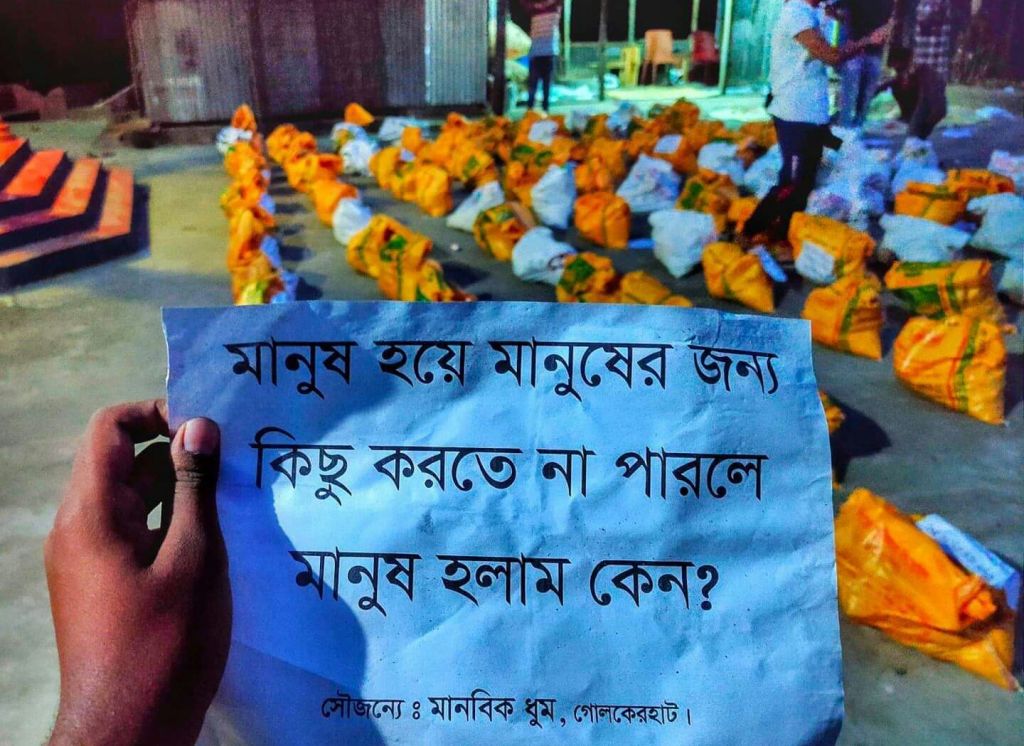 মানুষ হয়ে মানুষের জন্য
কিছু করতে না পারলে
মানুষ হলাম কেন?
সৌজন্যে ঃ মানবিক ধুম, গোলকেরহাট।